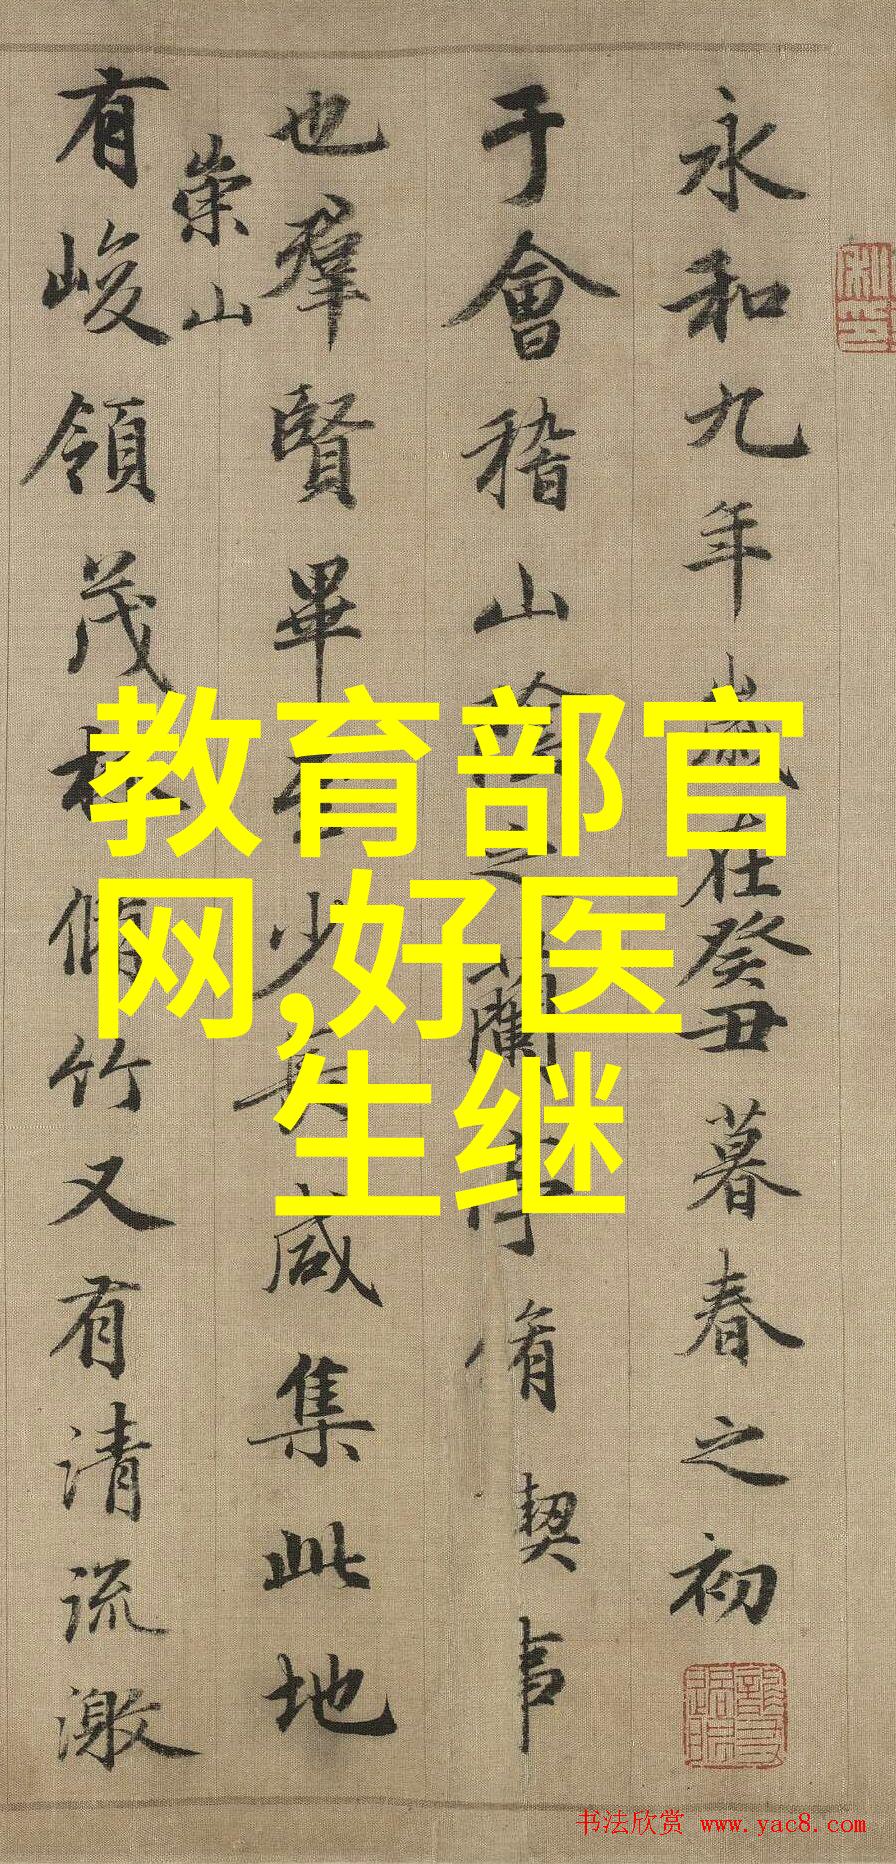 永和九年歲在癸丑暮春之初
于會稽山陰之蘭亭脩契事
也羣賢畢至少長咸集此地
有崇山峻領茂林脩竹又有清流激
教育部官
网,好医
生继
书法欣赏 www.yac8.com